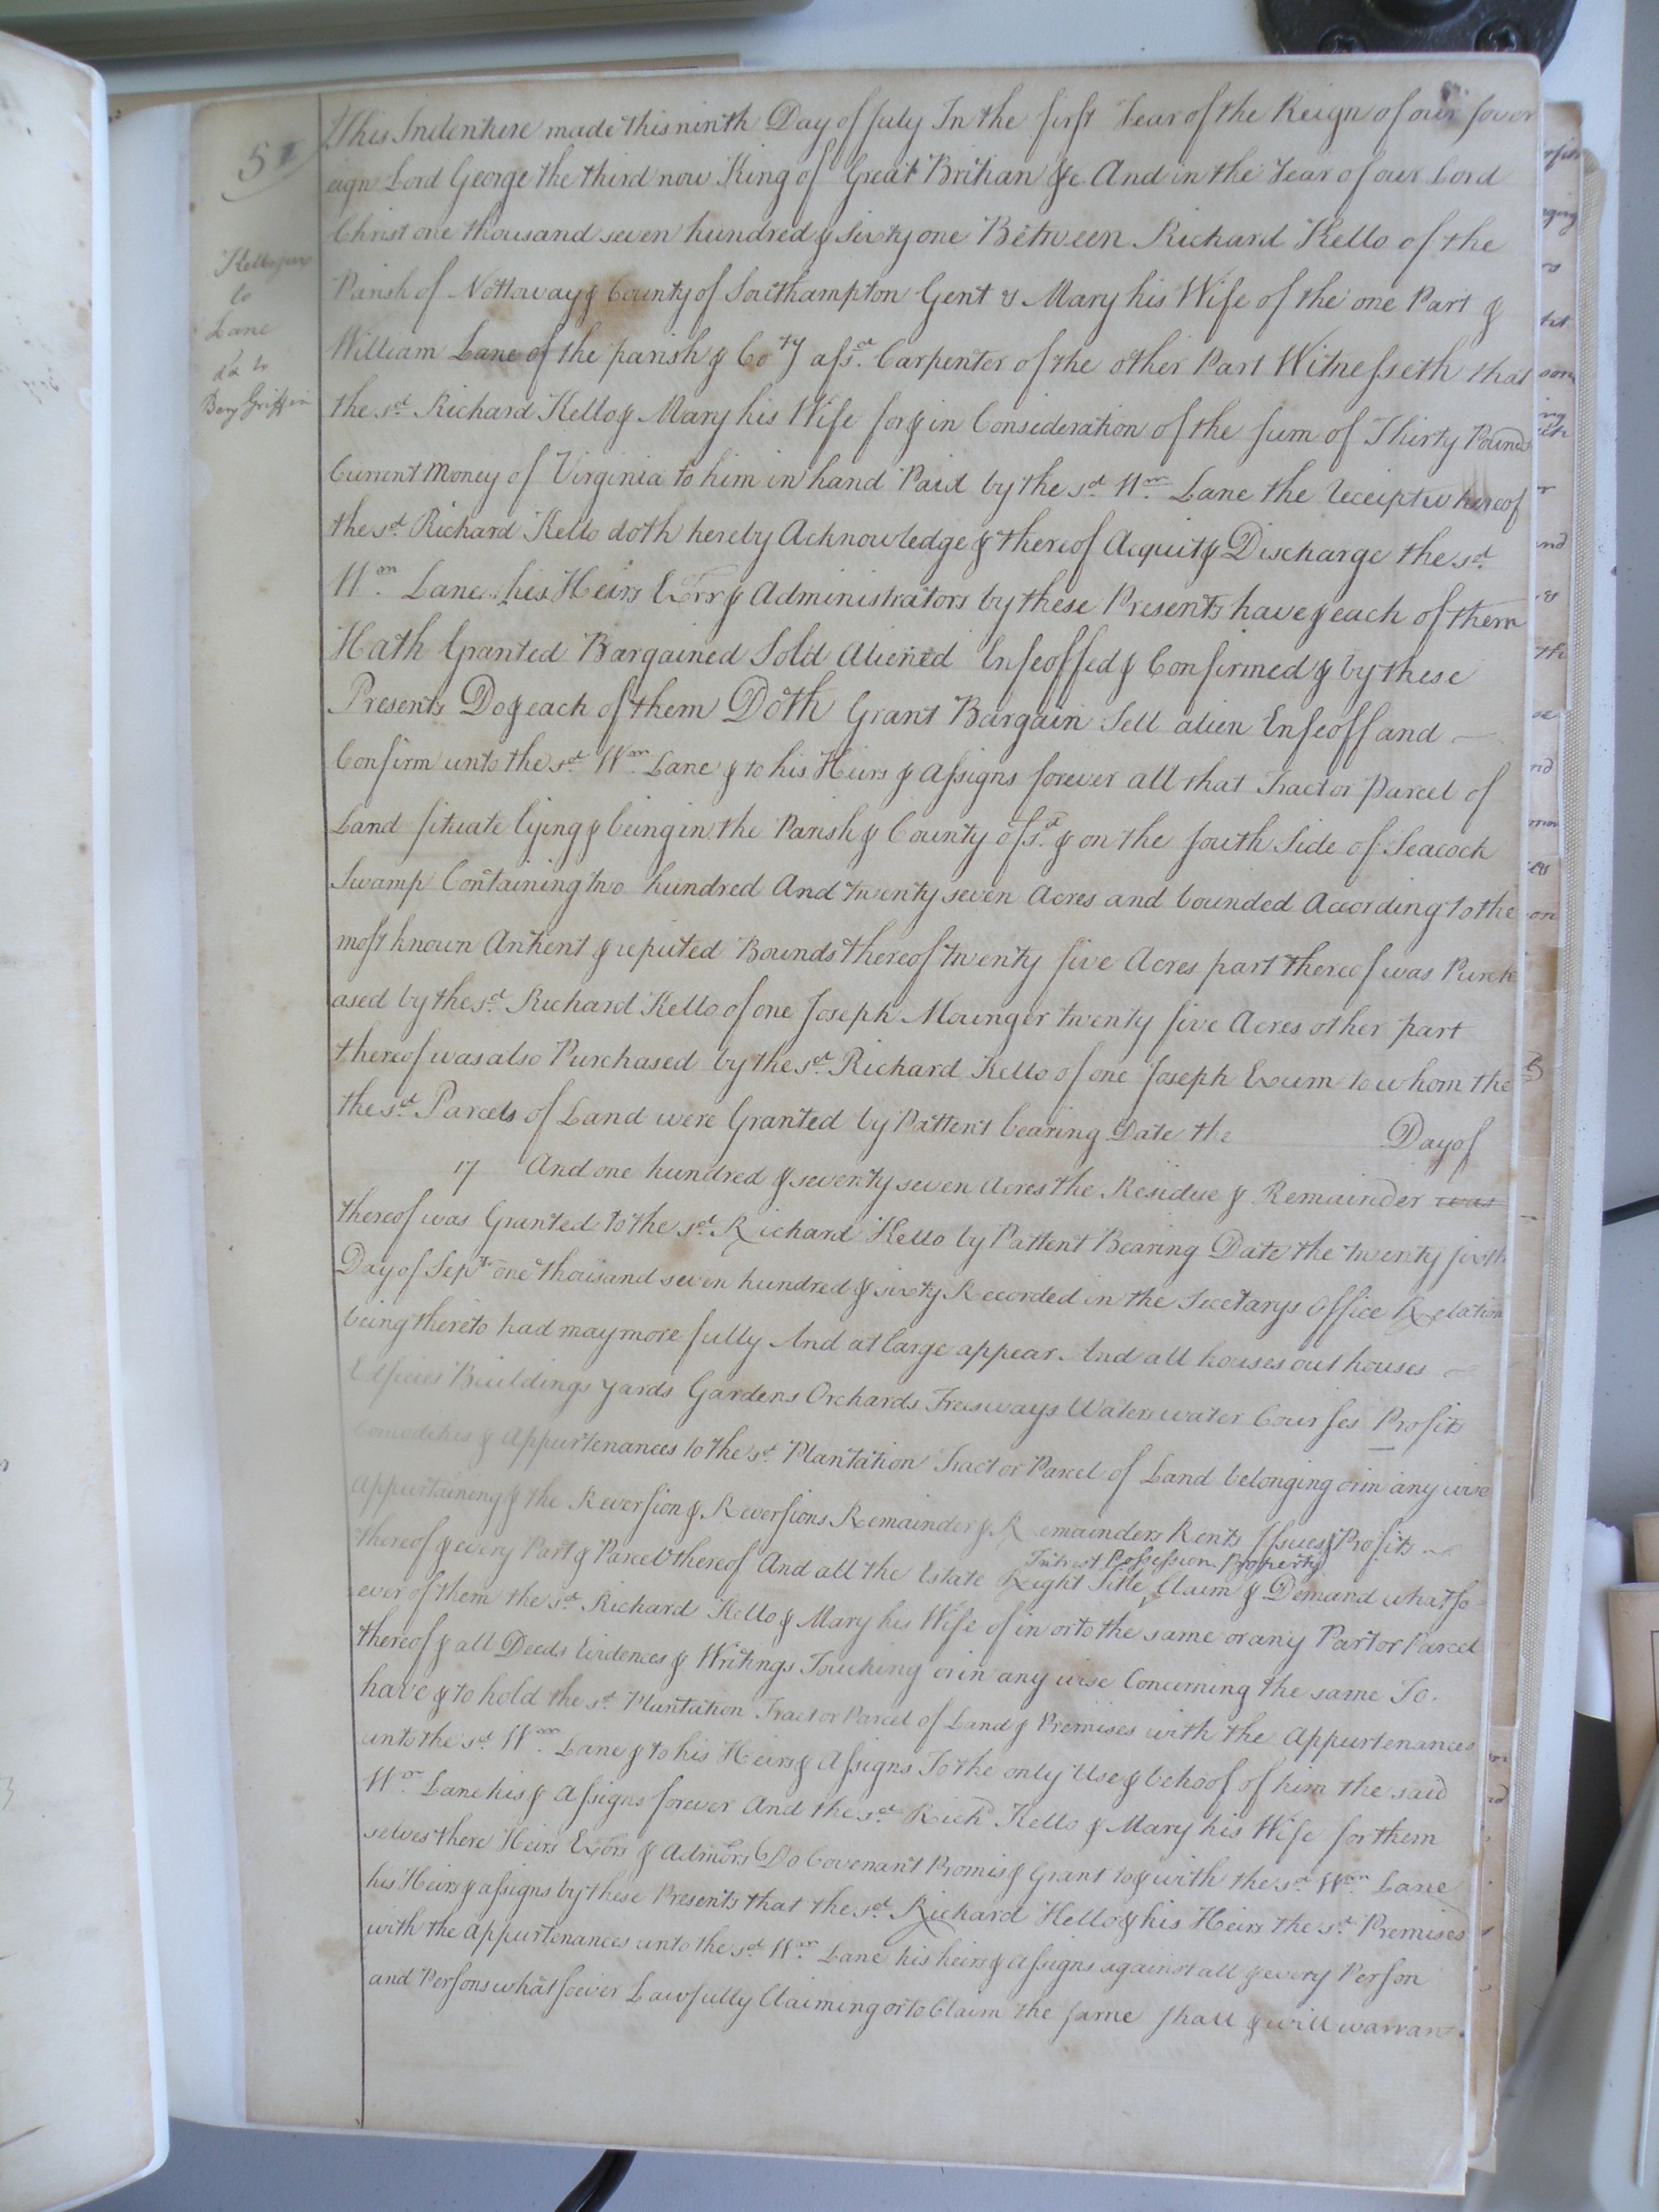 51
This Indenture made this ninth Day of July In the first Year of the Reign of our sover
eign Lord George the third now King of Great Britian &c. And in the Year of our Lord
Christ one thousand seven hundred & Sixty one Between Richard Kello of the
Parish of Nottoway & County of Southampton Gent & Mary his Wife of the one Part &
William Lane of the parish & Coty afsd. Carpenter of the other Part Witnesseth that
the sd. Richard Kello & Mary his Wife for & in Consideration of the sum of Thirty Pounds
Current Money of Virginia to him in hand Paid by the sd. Wm. Lane the receipt whereof
the sd. Richard Kello doth hereby Acknowledge & thereof Acquit & Discharge the sd.
Wm. Lane his Heirs Exrr & Administrators by these Presents have & each of them
Hath Granted Bargained Sold Aliened Enfeoffed & Confirmed & by these
Presents Do & each of them Doth Grant Bargain Sell alien Enfeoff and
Confirm unto the sd. Wm. Lane & to his Heirs & Assigns forever all that Tract or Parcel of
Land situate lying & being in the Parish & County afsd. & on the south Side of Seacock
Swamp Containing two hundred And twenty seven Acres and bounded According to the
most known Antient & reputed Bounds thereof twenty five Acres part thereof was Purch
ased by the sd. Richard Kello of one Joseph Mounger twenty five Acres other part
thereof was also Purchased by the sd. Richard Kello of one Joseph Exum to whom the
the sd. Parcels of Land were Granted by Pattent bearing Date the Day of
17 And one hundred & seventy seven Acres the Residue & Remainder was
thereof was Granted to the sd. Richard Kello by Pattent Bearing Date the twenty sixth
Day of Sepr. one thousand seven hundred & sixty Recorded in the Secetarys Office Relation
being thereto had may more fully And at large appear. And all houses out houses
Edficies Buildings yards Gardens Orchards Trees ways Waters water Courses Profits
Comodities & Appurtenances to the sd. Plantation Tract or Parcel of Land belonging or in any wise
Appurtaining & the Reversion & Reversions Remainder & Remainders Rents Issues & Profits
Intrest Possession Property
thereof & every Part & Parcel thereof And all the Estate Reight Title Claim & Demand whatso
ever of them the sd. Richard Kello & Mary his Wife of in or to the same or any Part or Parcel
thereof & all Deeds Evidences & Writings Touching or in any wise Concerning the same To
have & to hold the sd. Plantation Tract or Parcel of Land & Premises with the Appurtenances
unto the sd. Wm. Lane & to his Heirs & Assigns To the only Use & behoof of him the said
Wm. Lane his & Assigns forever And the sd. Richd. Kello & Mary his Wife for them
selves there Heirs Exors & Admors Do Covenant Promis & Grant to & with the sd. Wm. Lane
his Heirs & assigns by these Presents that the sd. Richard Kello & his Heirs the sd. Premises
with the appurtenances unto the sd. Wm. Lane his heirs & Assigns against all & every Person
and Persons whatsoever Lawfully Claiming or to Claim the same shall & will warrant
to
Lane
dd to
Benj Griffin